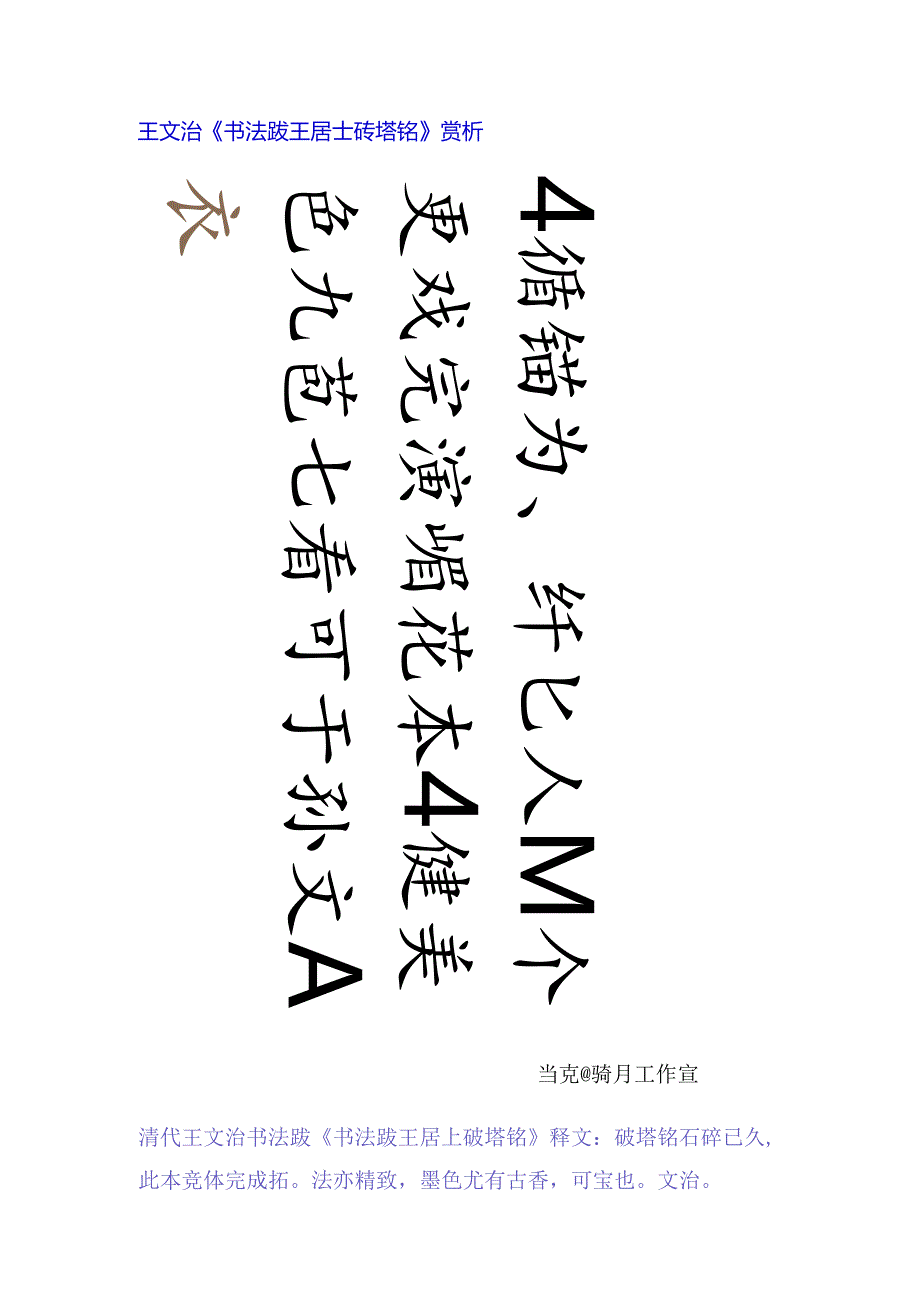 王文治《书法跋王居士砖塔铭》赏析
4循锱为、纤匕人M个
更戏完演嵋花本4健美
色九芭七看可于孙文A
衣
当克@骑月工作宣
清代王文治书法跋《书法跋王居上破塔铭》释文：破塔铭石碎己久，
此本竞体完成拓。法亦精致，墨色尤有古香，可宝也。文治。